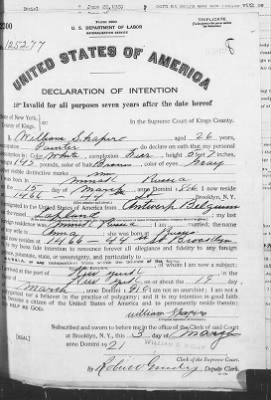 Form 2203
U. S. DEPARTMENT OF LABOR
NATURALIZATION SERVICE
TRIPLICATE
125277
UNITED STATES OF AMERICA
DECLARATION OF INTENTION
Invalid for all purposes seven years after the date hereof
State of New York,
County of Kings,
In the Supreme Court of Kings County.
I, William Shapiro aged 26 years,
occupation Painter do declare on oath that my personal
description is: Color White, complexion Fair, height 5 feet inches,
weight 145 pounds, color of hair Brown, color of eyes Gray
other visible distinctive marks
Minsk Russia
on the 15 day of March, anno Domini ; I now reside
at 1466 - 44 St Brooklyn, N.Y.
I emigrated to the United States of America from Antwerp Belgium
on the vessel Lapland; my last
foreign residence was Minsk Russia; I am married; the name
of my wife is Anna; she was born at Russia
and now resides at 1466 - 44 St Brooklyn
It is my bona fide intention to renounce forever all allegiance and fidelity to any foreign
prince, potentate, state, or sovereignty, and particularly to
of whom I am now a subject;
I arrived at the port of New York, in the
State of New York, on or about the 19 day
of March, anno Domini 1910; I am not an anarchist; I am not a
polygamist nor a believer in the practice of polygamy; and it is my intention in good faith
to become a citizen of the United States of America and to permanently reside therein:
SO HELP ME GOD.
William Shapiro
Subscribed and sworn to before me in the office of the Clerk of said Court
at Brooklyn, N.Y., this 3 day of March
anno Domini 1921
[SEAL]
Clerk of the Supreme Court.
By Deputy Clerk.